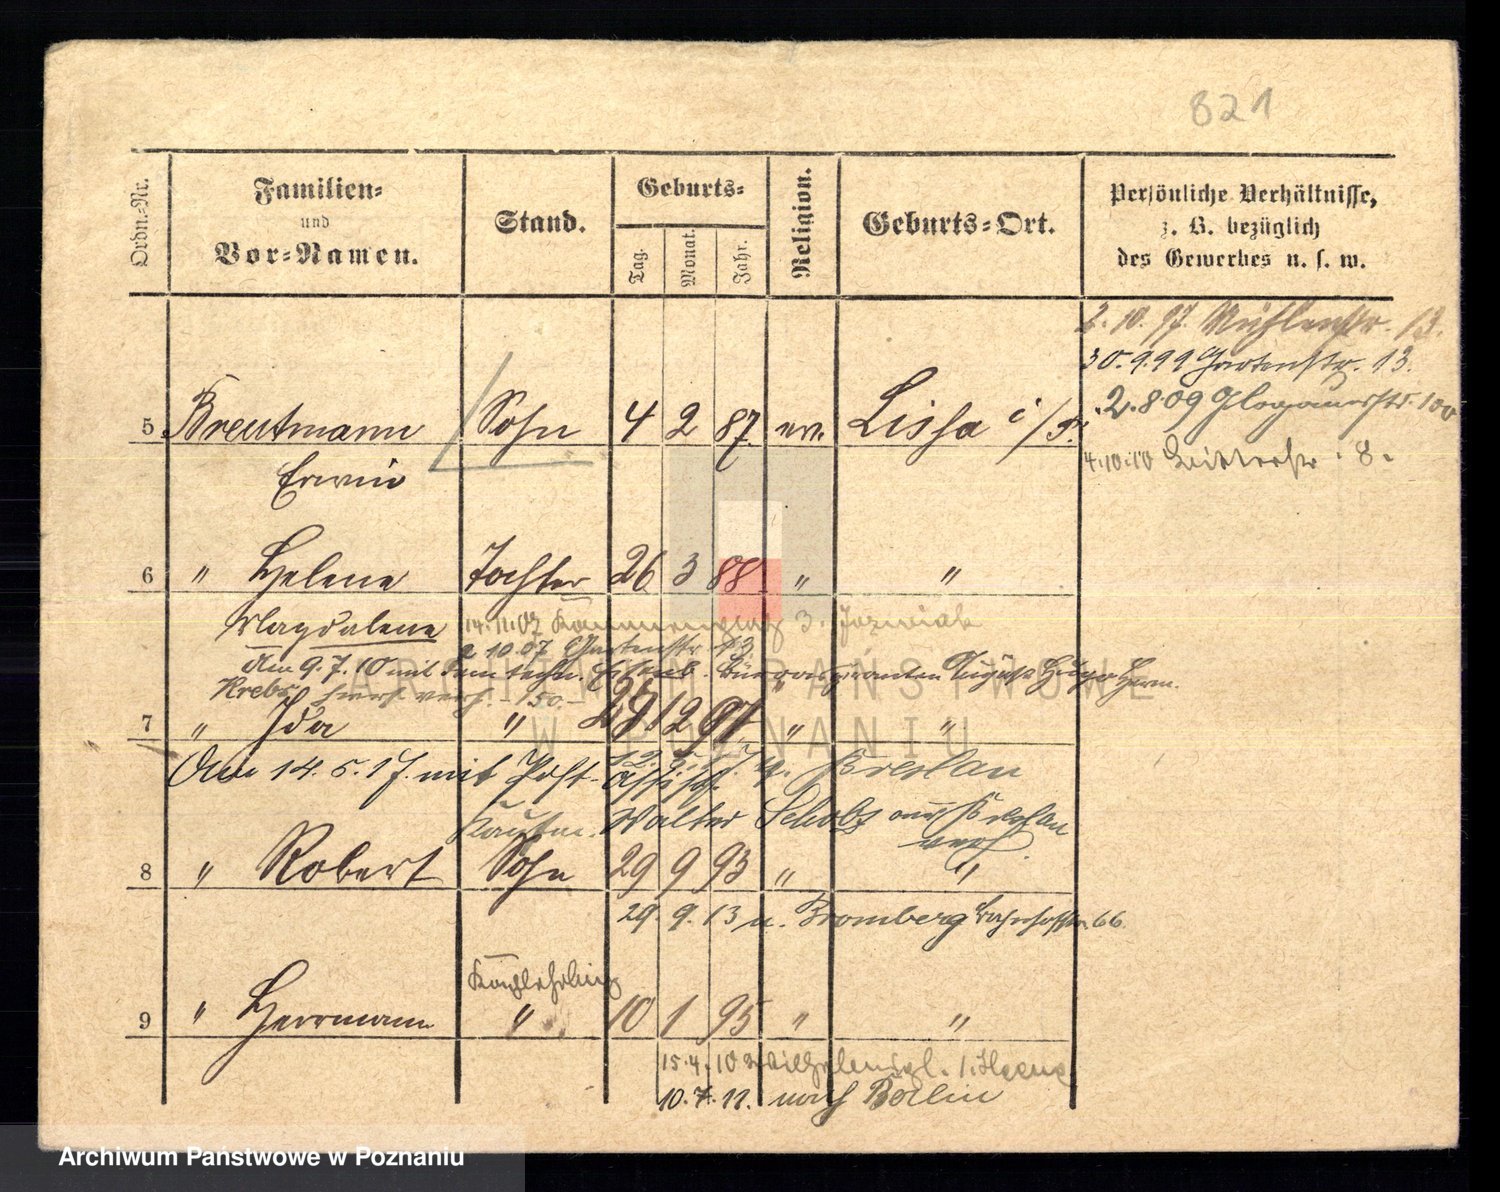 821
Ordn.-Nr.
Familien-
und
Vor-Namen.
Stand.
Geburts-
Tag.
Monat.
Jahr.
Religion.
Geburts-Ort.
Persönliche Verhältnisse,
z. B. bezüglich
des Gewerbes u. s. w.
2.10.97. Mühlenstr. 13.
30.9.99 Gartenstr. 13.
2.8.09 Glogauerstr. 100
4.10.10 8.
5 Breutmann Sohn 4 2 87. ev. Lissa i/P.
Erwin
6 " Helene Tochter 26 3 88. " "
Magdalena 14.11.07 3.
2 10.07 Gartenstr. 13.
Am 9.7.10 mit dem techn. Eisenb. August Hugo Herm.
Krebs verh.
7 " Ida " 12 97. " "
Am 14.5.17. mit Post-Assist. Breslau
Kaufm. Walter Scholz aus Breslau
verh.
8 " Robert Sohn 29 9 93 " "
29. 9. 13 n. Bromberg Bahnhofstr. 66.
9 " Herrmann " 10 1 95 " "
15.4.10
10.7.11. nach Berlin
ARCHIWUM PAŃSTWOWE
W POZNANIU
Archiwum Państwowe w Poznaniu